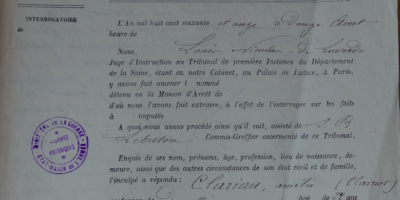 INTERROGATOIRE
de
L'An mil huit cent soixante et onze, le Douze Août
heure de
Nous, Louis Nicolas De Loverdo
Juge d'Instruction au Tribunal de première Instance du Département
de la Seine, étant en notre Cabinet, au Palais de Justice, à Paris,
y avons fait amener l nommé
détenu en la Maison d'Arrêt de
d'où nous l'avons fait extraire, à l'effet de l'interroger sur les faits
à imputés
A quoi nous avons procédé ainsi qu'il suit, assisté de
Lebreton Commis-Greffier assermenté de ce Tribunal.
Enquis de ses nom, prénoms, âge, profession, lieu de naissance, de-
meure, ainsi que des autres circonstances de son état civil et de famille,
l'inculpé a répondu: Clariau, (Clariaut)
DE LA GUERRE
ARCHIVES
HISTORIQUES
ETAT-MAJOR DE